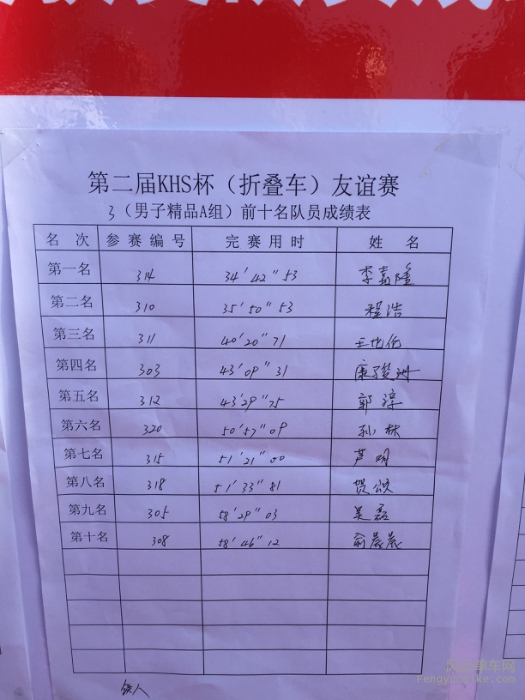 第二届KHS杯（折叠车）友谊赛
3（男子精品A组）前十名队员成绩表
名 次 参 赛 编 号 完 赛 用 时 姓 名
第一名 314 34'42"53 李嘉隆
第二名 310 35'50"53 程浩
第三名 311 40'20"71
第四名 303 43'09"31
第五名 312 43'29"75 郭淳
第六名 320 50'57"09 孙林
第七名 315 51'21"00 芦明
第八名 318 51'33"81 贺欣
第九名 305 58'29"03 吴磊
第十名 308 58'46"12 俞晨晨
Fengyunbike.com